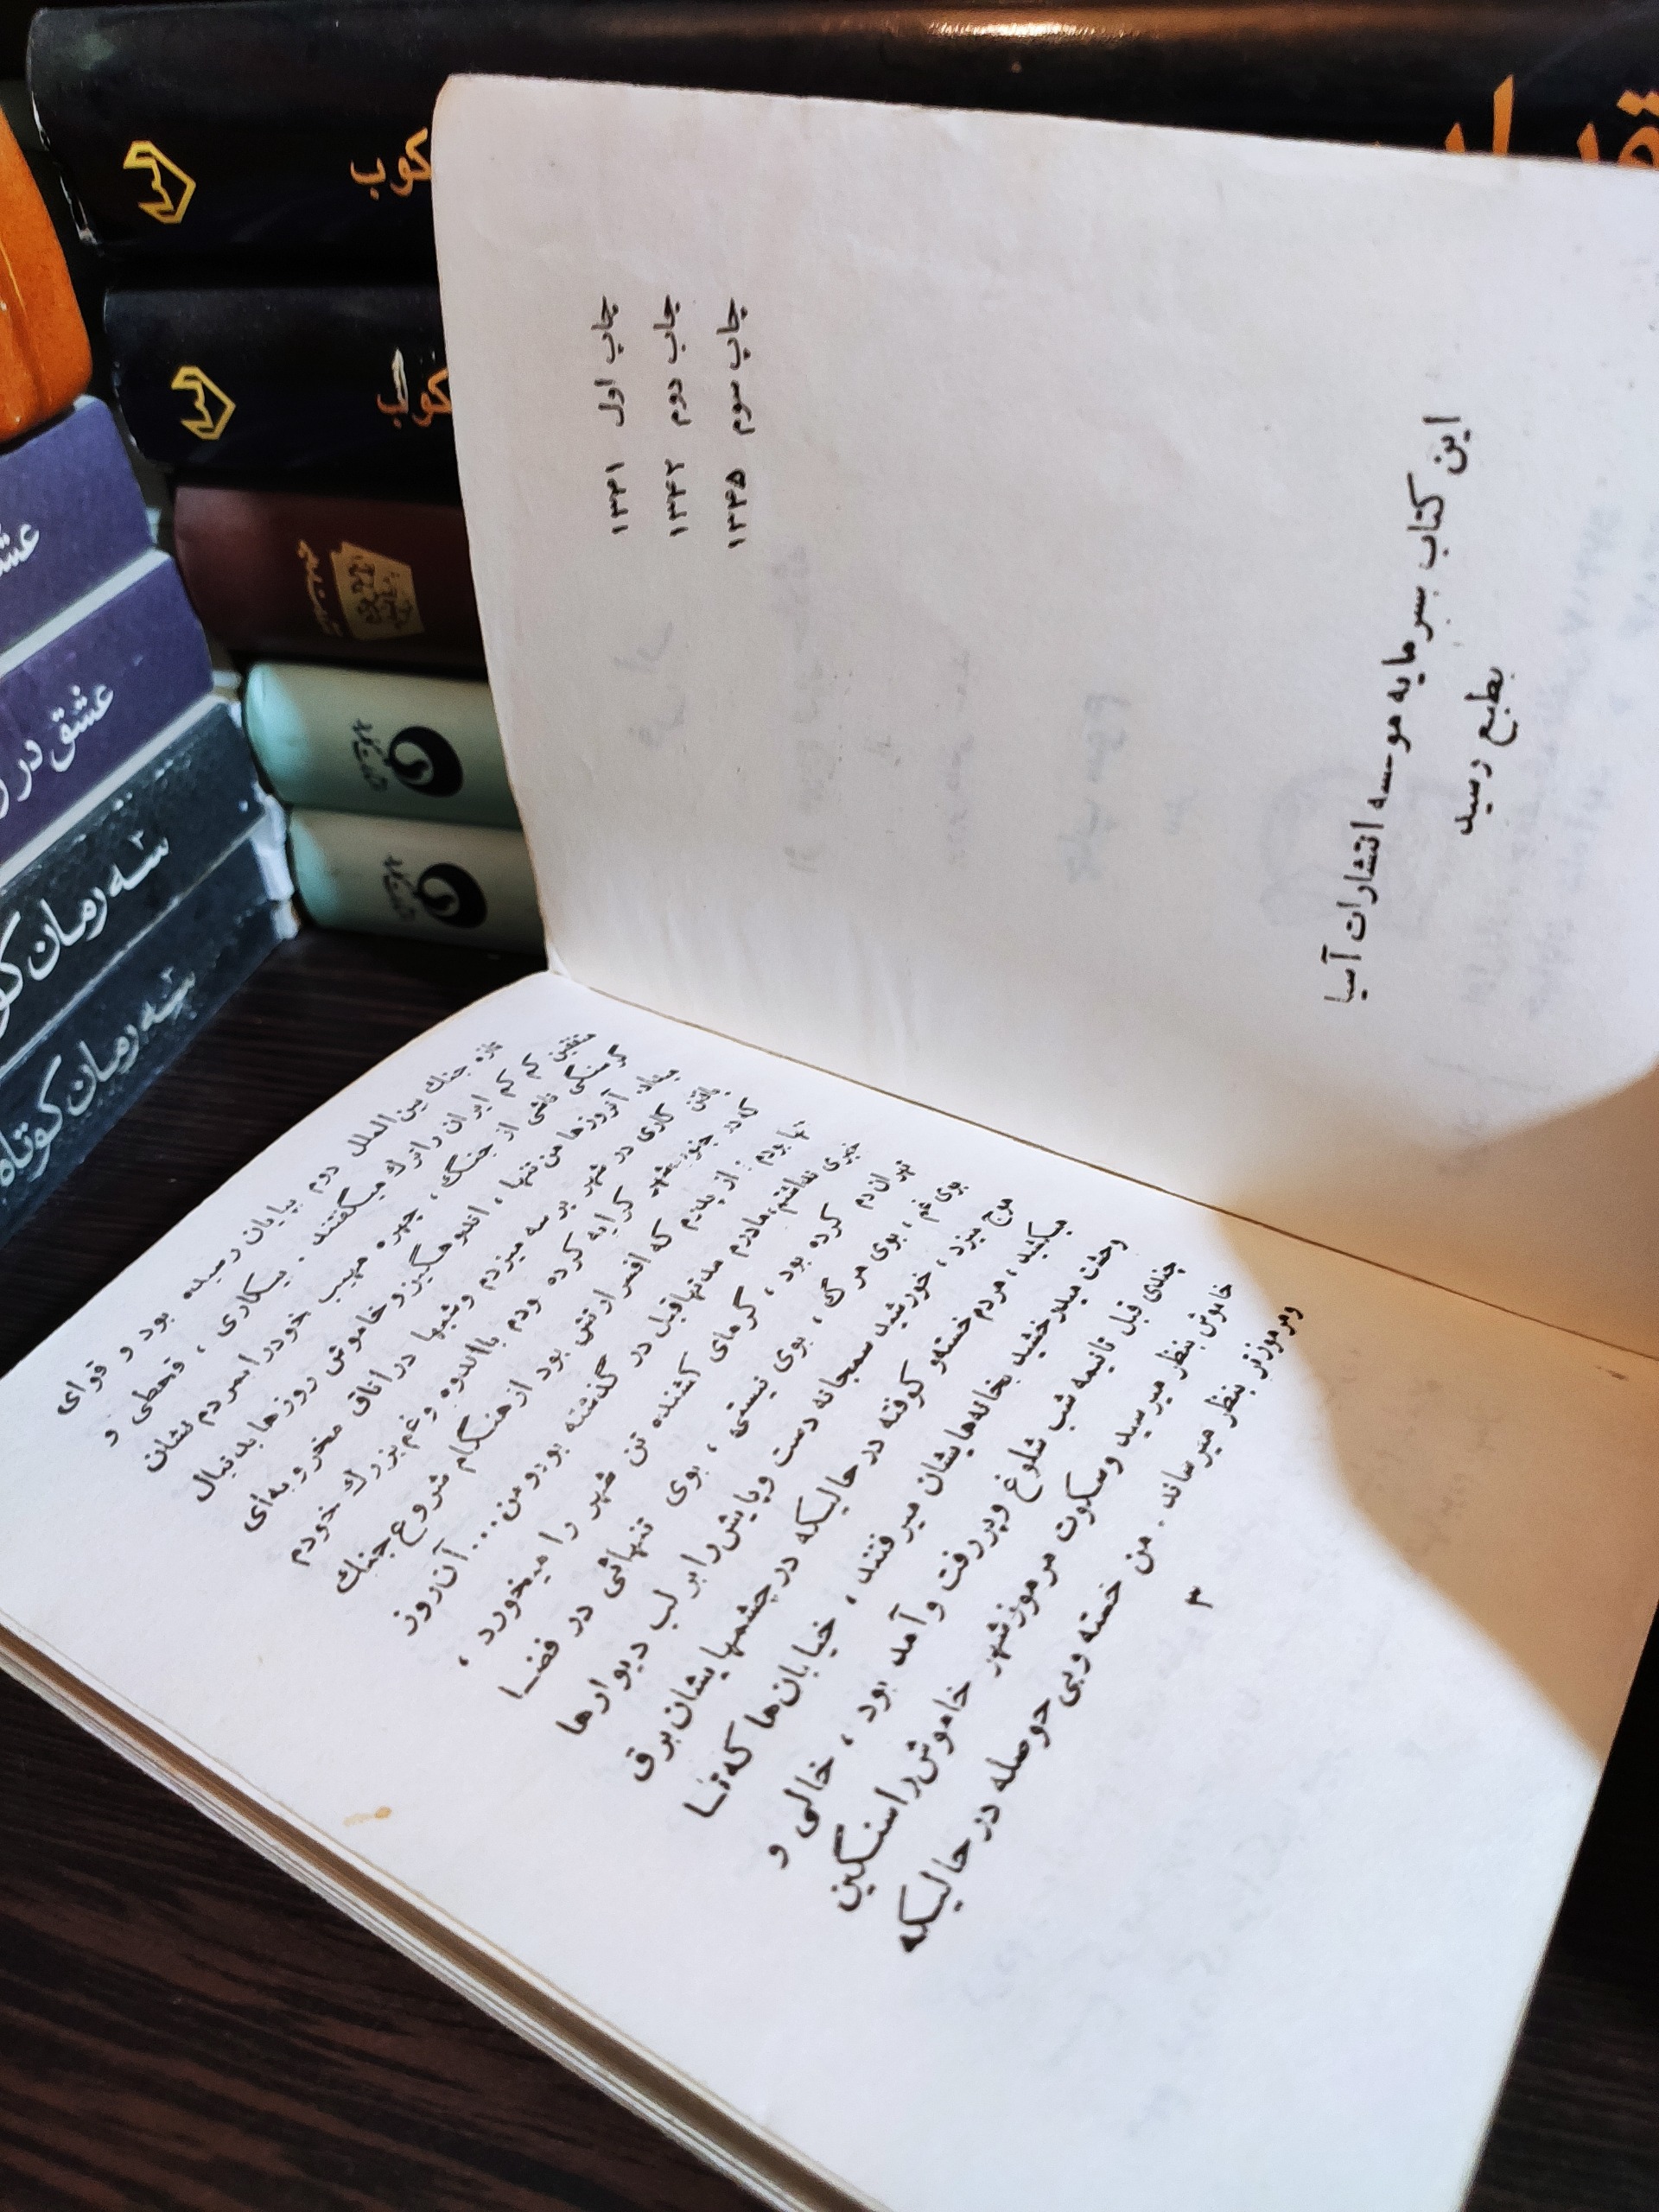 چاپ اول ۱۳۴۱
چاپ دوم ۱۳۴۲
چاپ سوم ۱۳۴۵
این کتاب بسرمایه موسسه انتشارات آسیا
بطبع رسید
تازه جنك بین‌الملل دوم بپایان رسیده بود و قوای
متفقین کم کم ایران را ترك میگفتند . بیکاری ، قحطی و
گرسنگی ناشی از جنگ ، چهره مهیب خود را بمردم نشان
میداد. آنروزها من تنها ، اندوهگین و خاموش روزها بدنبال
یافتن کاری در شهر پرسه میزدم و شبها در اتاق مخروبه‌ای
که در جنوب شهر کرایه کرده بودم با اندوه و غم بزرك خودم
تنها بودم : از پدرم که افسر ارتش بود از هنگام شروع جنك
خبری نداشتم، مادرم مدتها قبل در گذشته بود و من... آن روز
تهران دم کرده بود ، گرمای کشنده تن شهر را میخورد ،
بوی غم ، بوی مرگ ، بوی نیستی ، بوی تنهائی در فضا
موج میزد ، خورشید سمجانه دست و پایش را بر لب دیوارها
میکشید ، مردم خسته و کوفته در حالیکه در چشمهایشان برق
وحشت میدرخشید بخانه‌هایشان میرفتند ، خیابان‌ها که تا
چندی قبل تا نیمه شب شلوغ و پر رفت و آمد بود ، خالی و
خاموش بنظر میرسید و سکوت مرموز شهر خاموش را سنگین
ومرموزتر بنظر میرساند . من خسته و بی حوصله در حالیکه
۳
کوب
کوب
عشق در
سه رمان کو
سه رمان کوتاه